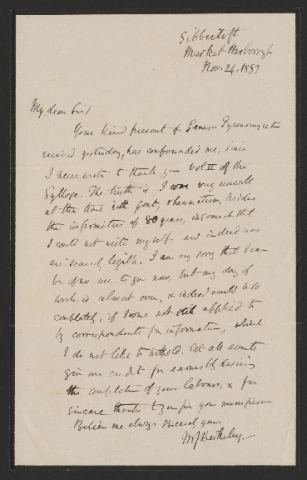 Sibbertoft
Market Harborough
Nov. 24, 1883
My dear Sir
Your kind present of Genera Pyrenomycetum
received yesterday, has confounded me, since
I never wrote to thank you for vol II of the
Sylloge. The truth is I was very unwell
at the time with gout, rheumatism, besides
the infirmities of 80 years, insomuch that
I could not write myself, and indeed now
am scarcely legible. I am very sorry that I can
be of no use to you now, but my day of
work is almost over, & indeed would be so
completely, if I was not still applied to
by correspondents for information, which
I do not like to withhold. At all events
give me credit for earnestly desiring
the completion of your labours, & for
sincere thanks to you for your
Believe me always sincerely yours
M J Berkeley